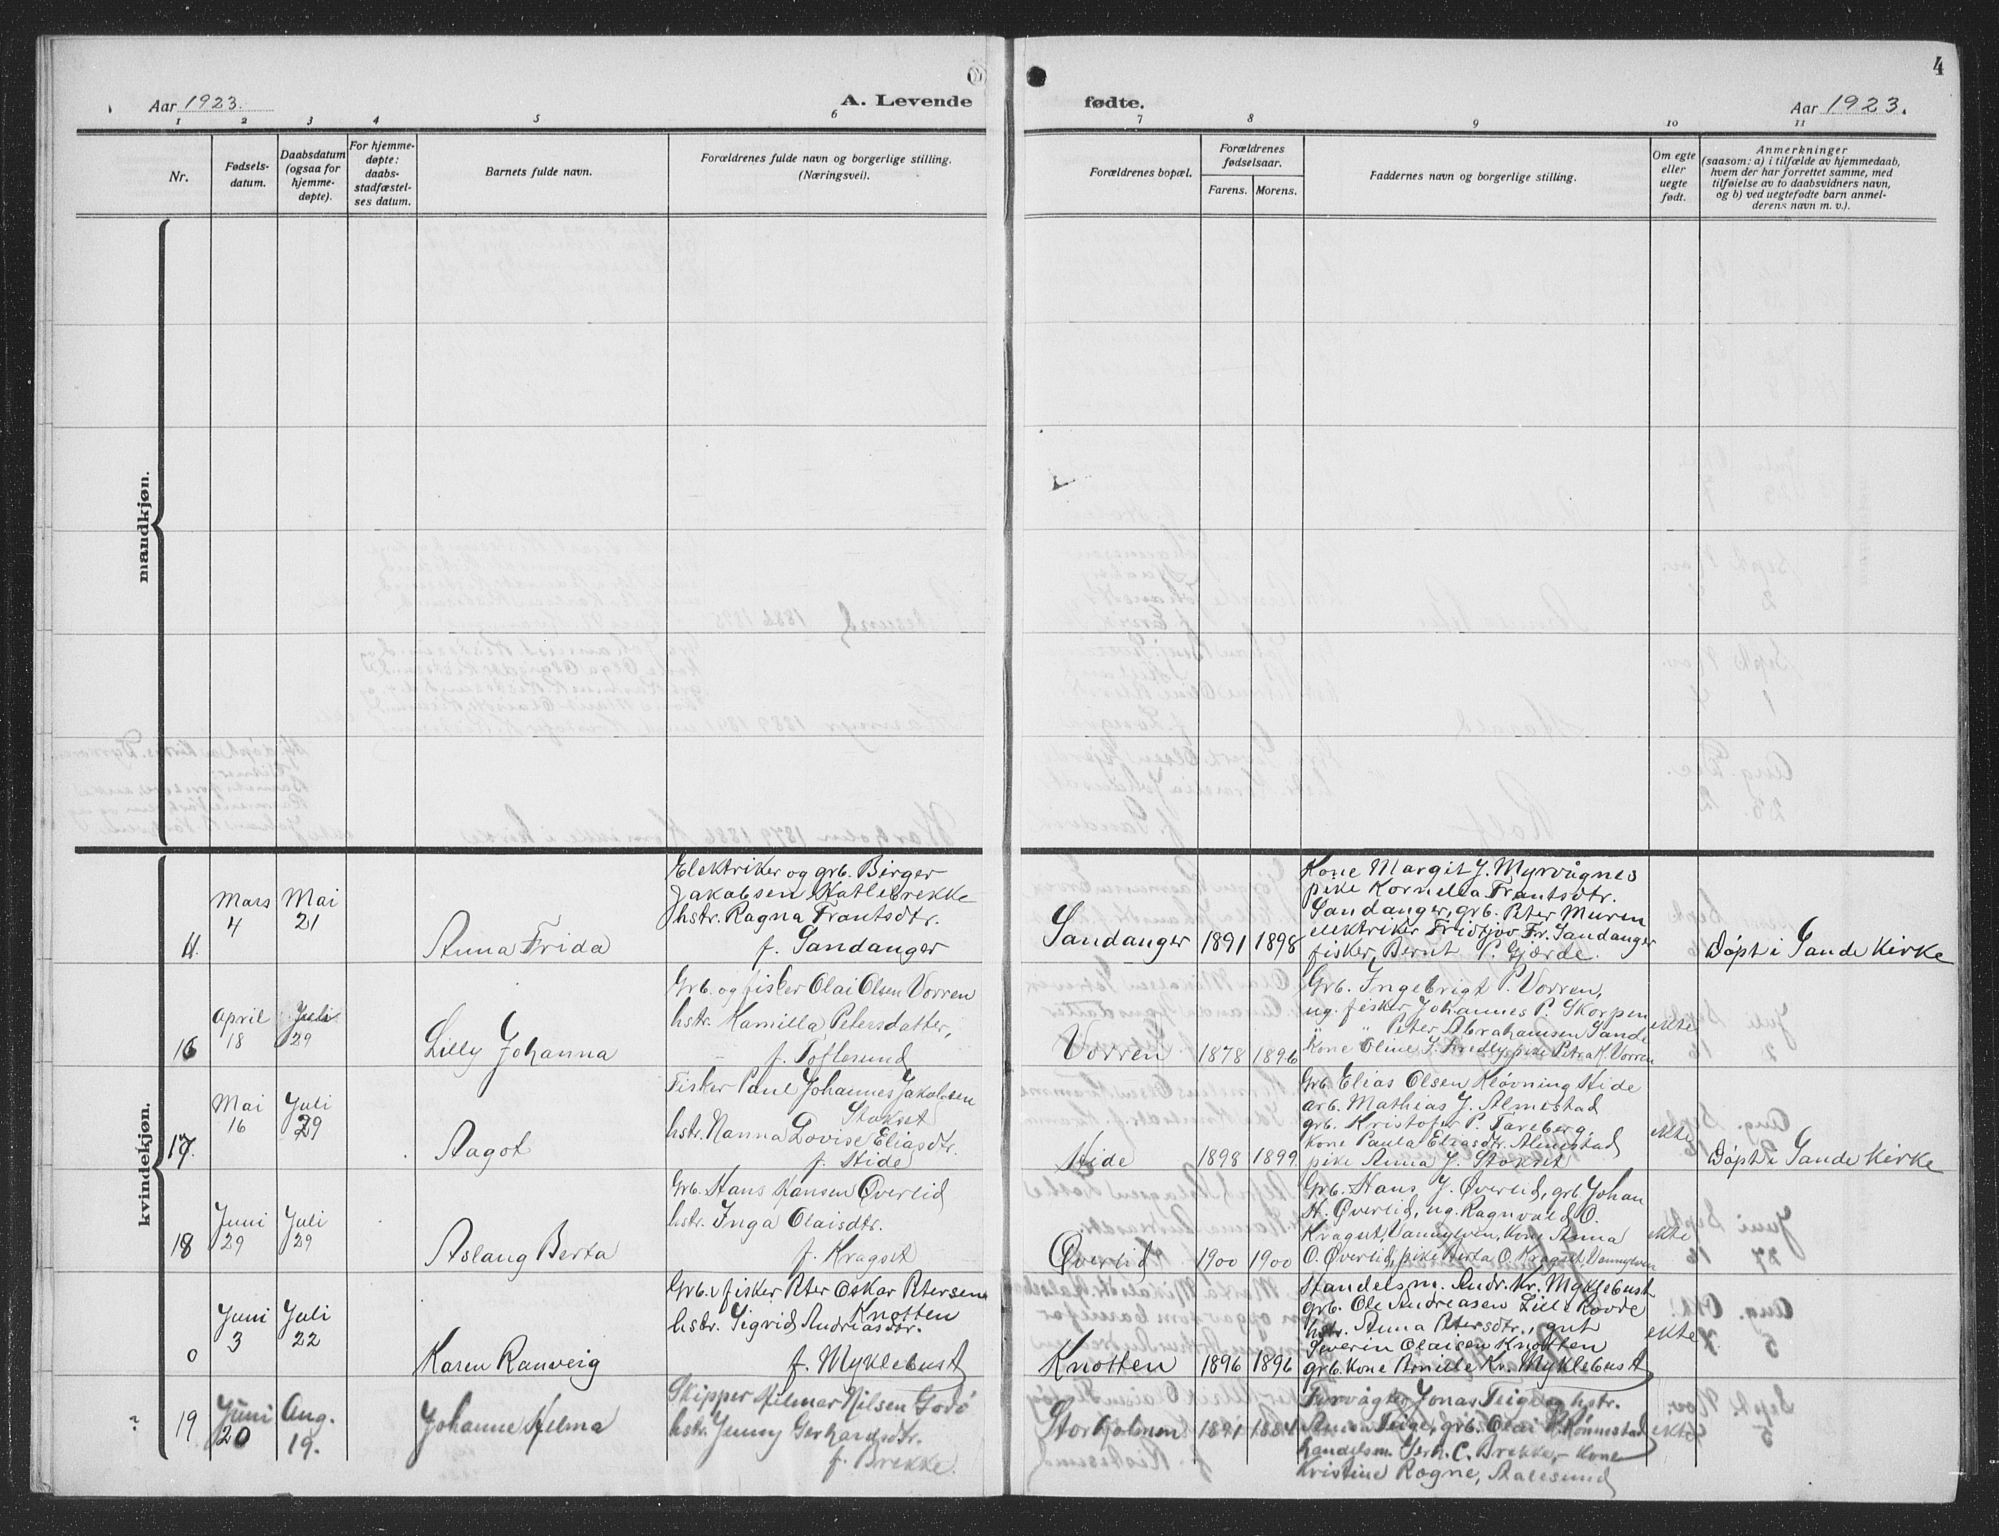 4
Aar 1923.
A. Levende
fødte.
Aar 1923.
1 2 3 4 5 6 7 8 9 10 11
Nr.
Fødsels-
datum.
Daabsdatum
(ogsaa for
hjemme-
døpte).
For hjemme-
døpte:
daabs-
stadfæstel-
ses datum.
Barnets fulde navn.
Forældrenes fulde navn og borgerlige stilling.
(Næringsvei).
Forældrenes bopæl.
Forældrenes
fødselsaar.
Farens. Morens.
Faddernes navn og borgerlige stilling.
Om egte
eller
uegte
født.
Anmerkninger
(saasom: a) i tilfælde av hjemmedaab,
hvem der har forrettet samme, med
tilføielse av to daabsvidners navn,
og b) ved uegtefødte barn anmel-
derens navn m. v.).
mandkjøn.
kvindekjøn.
11.
Mars
4
Mai
21
Anna Frida
Elektriker og grb. Birger
Jakobsen Katlebrekke
hstr. Ragna Frantsdtr.
f. Sandanger
Sandanger 1891 1898
Kone Margit J. Myrvågnes
pike Kornelia Frantsdtr.
Sandanger, grb. Peter Muren
elektriker Fridtjov Fr. Sandanger
fisker, Bernt P. Gjærde.
Døpt i Sande Kirke
16
April
18
Juli
29
Lilly Johanna
Grb. og fisker Olai Olsen Vorren
hstr. Kamilla Petersdatter,
f. Toftesund
Vorren 1878 1896
Grb. Ingebrigt P. Vorren,
ug. fisker Johannes P. Skorpen
" " Peter Abrahamsen Sande
Kone Oline J. pike Petra K. Vorren
ekte
17.
Mai
16
Juli
29
Aagot
Fisker Paul Johannes Jakobsen
Stokset
hstr. Nanna Lovise Eliasdtr.
f. Hide
Hide 1898 1899
Grb. Elias Olsen Kløvning Hide
arb. Mathias J. Almestad
grb. Kristofer P. Tareberg,
Kone Paula Eliasdtr. Almestad
pike Anna J. Stokset
ekte
Døpt i Sande Kirke
18
Juni
29
Juli
29
Aslaug Berta
Grb. Hans Hansen Øverlid
hstr. Inga Olaisdtr.
f. Kragset
Øverlid 1900 1900
Grb. Hans J. Øverlid, grb. Johan
H. Øverlid, ug. Ragnvald O.
Kragset, Vannylven, Kone Anna
O. Øverlid, pike Berta O. Kragset, Vannylven
ekte
0
Juni
3
Juli
22
Karen Ranveig
Grb. & fisker Peter Oskar Petersen
Knotten
hstr. Sigrid Andreasdtr.
f. Myklebust
Knotten 1896 1896
Handelsm. Andr. Kr. Myklebust
grb. Ole Andreasen Lille Rovde
hstr. Anna Petersdtr., gut
Severin Olaisen Knotten
grb. Kone Kr. Myklebust
ekte
?
19
Juni
20
Aug.
19.
Johanne Helma
Skipper Hilmar Nilsen Godø
hstr. Jenny Gerhardsdtr.
f. Brekke.
Storholmen 1891 1884
Fyrvågter Jonas Teige, hstr.
Anna Teige, grb. Olai P. Rønnestad
handelsm. Gerh. C. Brekke, Kone
Kristine Rogne, Aalesund
ekte